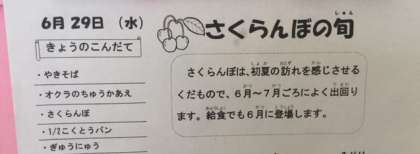 6月29日（水）
きょうのこんだて
・やきそば
・オクラのちゅうかあえ
・さくらんぼ
・1/2こくとうパン
・ぎゅうにゅう
さくらんぼの旬
さくらんぼは、初夏の訪れを感じさせる
くだもので、6月～7月ごろによく出回り
ます。給食でも6月に登場します。